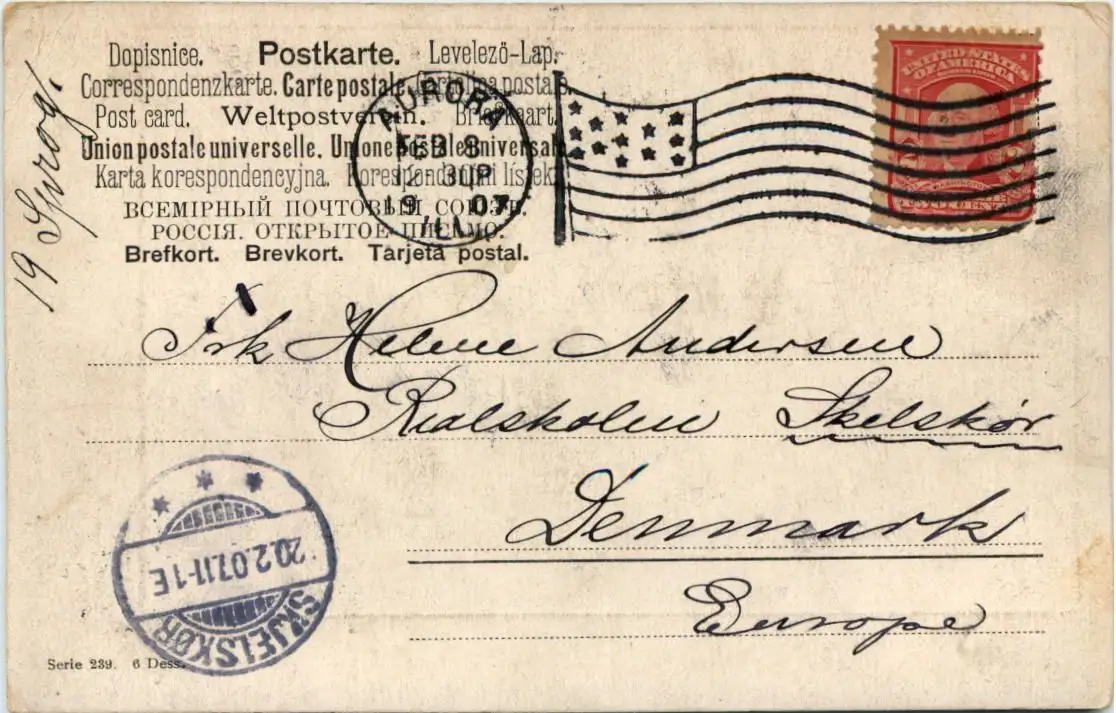 Dopisnice. Postkarte. Levelező-Lap.
Correspondenzkarte. Carte postale. Cartolina postale.
Post card. Weltpostverein. Briefkaart.
Union postale universelle. Unione postale universale.
Karta korespondencyjna. Korespondenční lístek.
ВСЕМІРНЫЙ ПОЧТОВЫЙ СОЮЗЪ.
РОССІЯ. ОТКРЫТОЕ ПИСЬМО.
Brefkort. Brevkort. Tarjeta postal.
AURORA
FEB 8
2-30P
1907
ILL.
UNITED STATES
OF AMERICA
2 2
WASHINGTON
19
Frk Helene Andersen
Realskolen Skelskør
Denmark
Europe
20.2.07.11-1E
SKJELSKØR
Serie 239. 6 Dess.